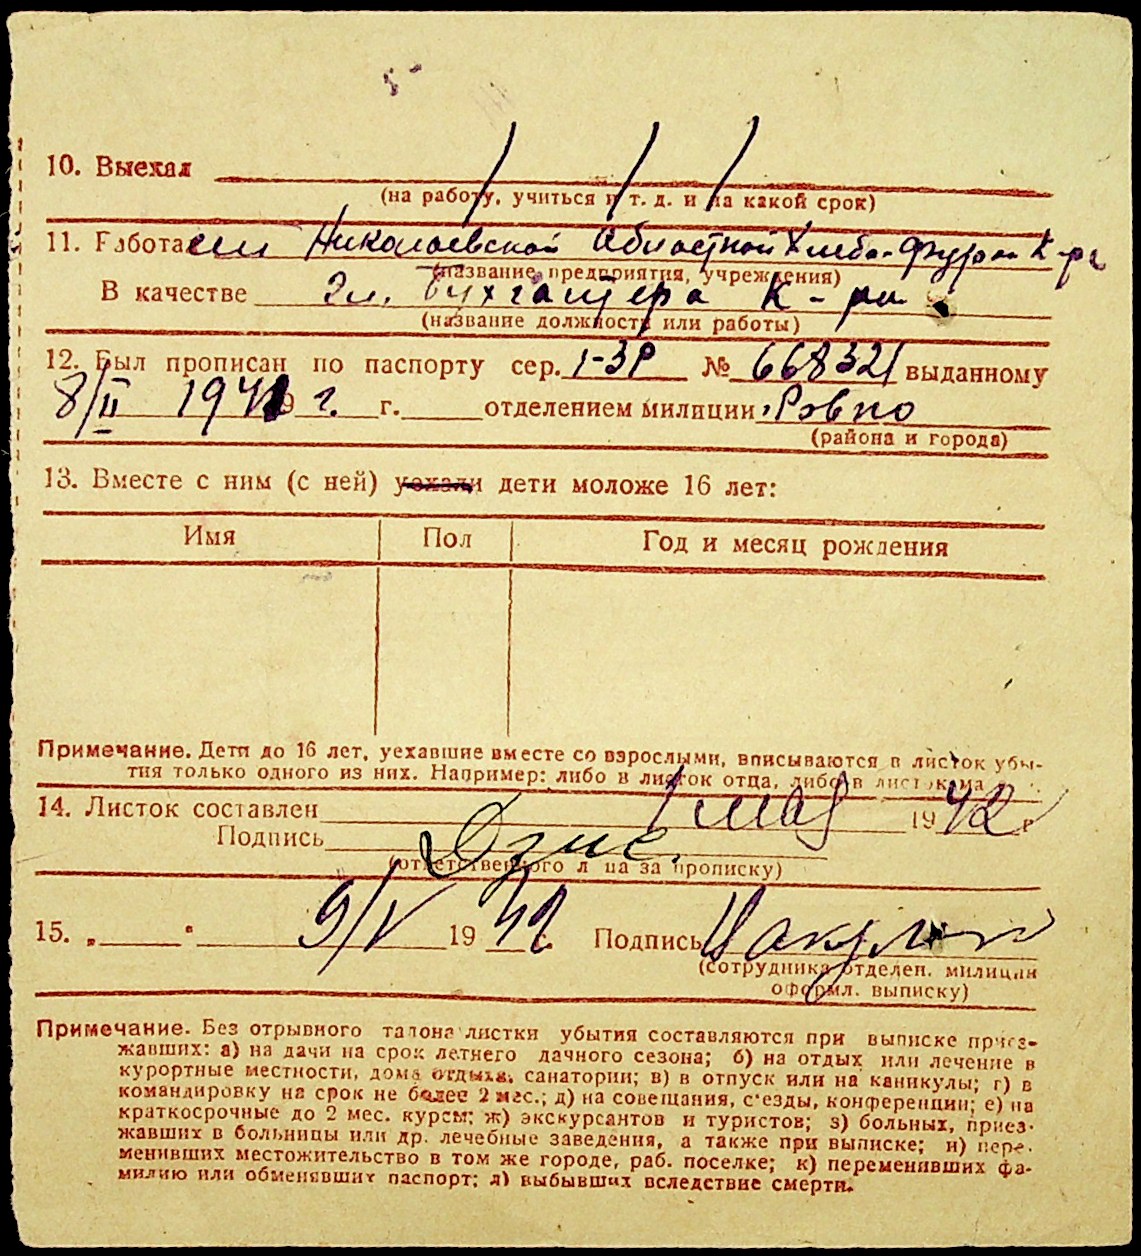 10. Выехал / / /
(на работу, учиться и т. д. и на какой срок)
11. Работа ет Николаевской Областной Хлебо-Фураж К-ра
(название предприятия, учреждения)
В качестве гл. бухгалтера К-ры
(название должности или работы)
12. Был прописан по паспорту сер. 1-ЗР № 668321 выданному
8/II 1941 г. г. отделением милиции Ровно
(района и города)
13. Вместе с ним (с ней) уехали дети моложе 16 лет:
Имя Пол Год и месяц рождения
Примечание. Дети до 16 лет, уехавшие вместе со взрослыми, вписываются в листок убы-
тия только одного из них. Например: либо в листок отца, либо в листок ма
14. Листок составлен 1 мая 1942 г
Подпись
(ответственного лица за прописку)
15. „ " 9/V 1942 г. Подпись
(сотрудника отделен. милиции
оформл. выписку)
Примечание. Без отрывного талона листки убытия составляются при выписке приез-
жавших: а) на дачи на срок летнего дачного сезона; б) на отдых или лечение в
курортные местности, дома отдыха, санатории; в) в отпуск или на каникулы; г) в
командировку на срок не более 2 мес.; д) на совещания, с'езды, конференции; е) на
краткосрочные до 2 мес. курсы; ж) экскурсантов и туристов; з) больных, приез-
жавших в больницы или др. лечебные заведения, а также при выписке; и) пере-
менивших местожительство в том же городе, раб. поселке; к) переменивших фа-
милию или обменявших паспорт; л) выбывших вследствие смерти.